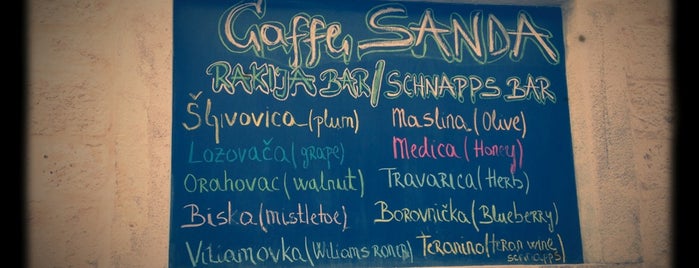 Caffe SANDA
RAKIJA BAR/SCHNAPPS BAR
Šljivovica (plum)
Lozovača (grape)
Orahovac (walnut)
Biska (mistletoe)
Viliamovka (Wiliams
Maslina (Olive)
Medica (Honey)
Travarica (Herb)
Borovnička (Blueberry)
Teranino (teran wine
schnapps